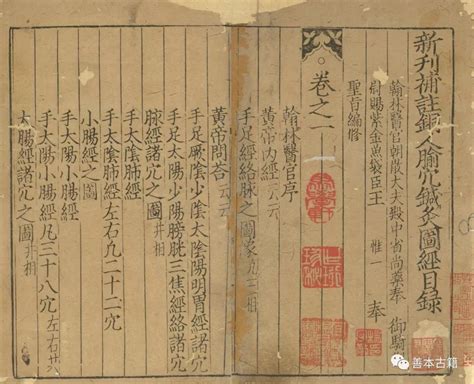 新刊補註銅人腧穴鍼灸圖經目錄
翰林醫官朝散大夫殿中省尚藥奉御騎
都尉賜紫金魚袋臣王 惟一 奉
聖旨編修
卷之一
翰林醫官序
黃帝內經云云
手足經絡脉之圖
黃帝問荅云云
手足太陰少陰太陰陽明胃經諸穴
手足太陽少陽膀胱三焦經絡諸穴
諸穴之圖并相
手太陰肺經
手太陰肺經左右九二十二穴
小腸經之圖
手太陽小腸經
手太陽小腸經凡三十八穴
大腸經諸穴之圖并相
善本古籍